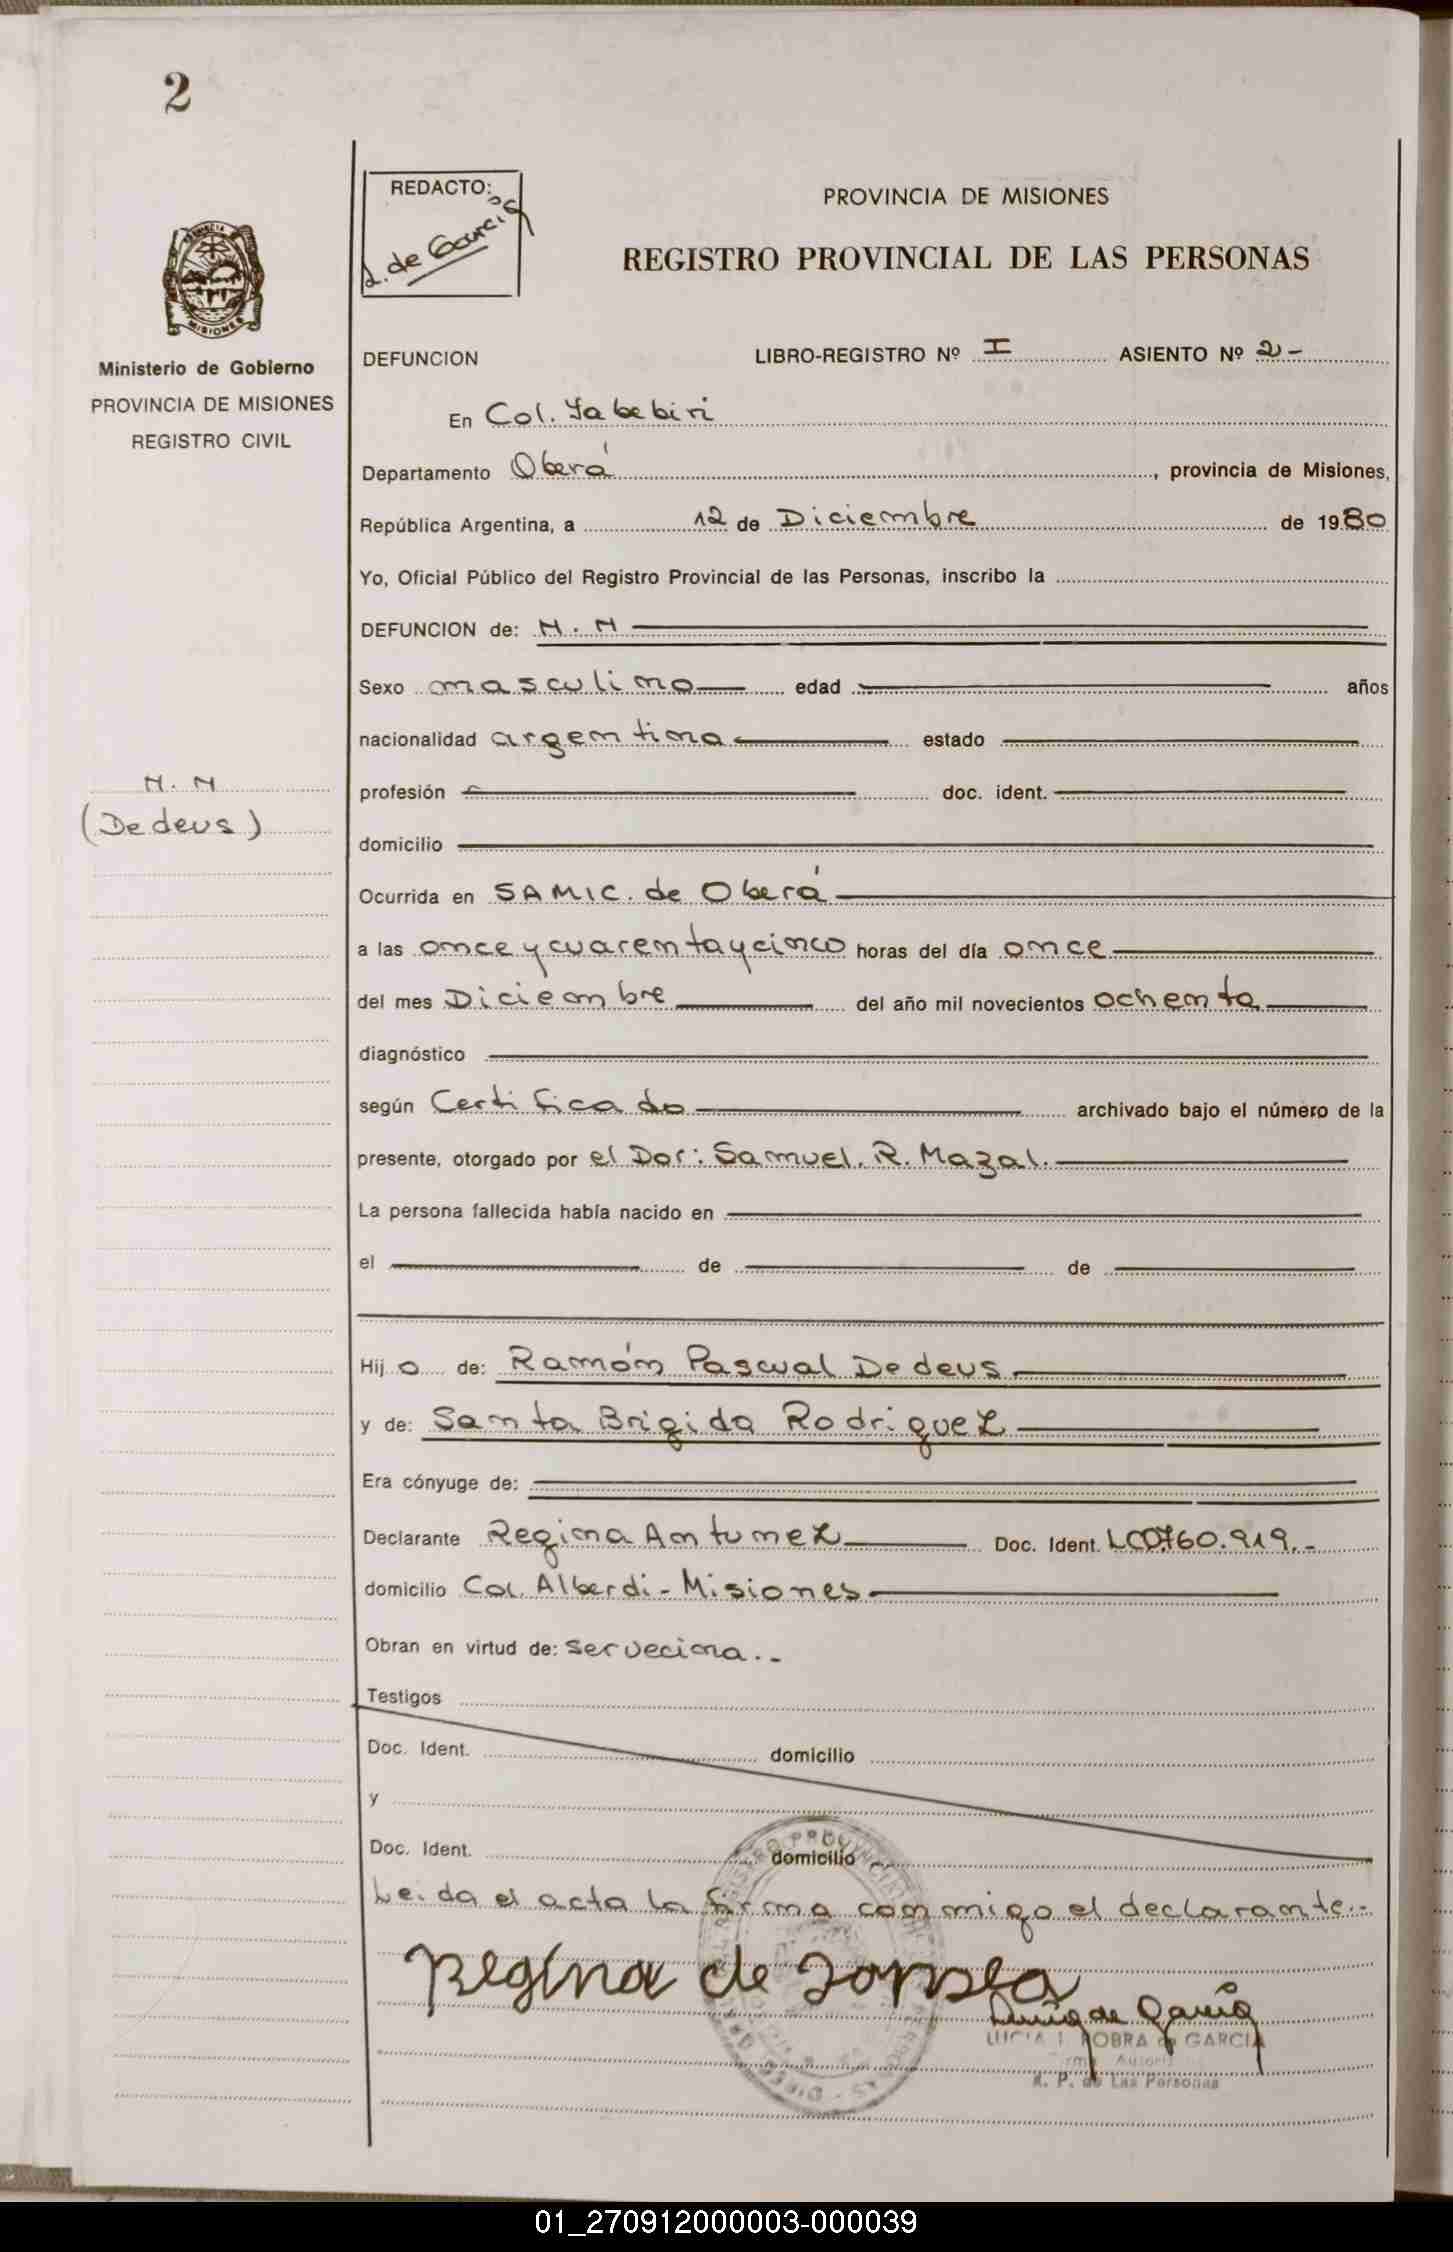 2
REDACTO:
L. de Garcia
PROVINCIA DE MISIONES
REGISTRO PROVINCIAL DE LAS PERSONAS
MISIONES
Ministerio de Gobierno
PROVINCIA DE MISIONES
REGISTRO CIVIL
DEFUNCION LIBRO-REGISTRO Nº I ASIENTO Nº 2-
En Col. Yabebiri
Departamento Oberá, provincia de Misiones,
República Argentina, a 12 de Diciembre de 1980
Yo, Oficial Público del Registro Provincial de las Personas, inscribo la
DEFUNCION de: N. N
Sexo masculino edad años
nacionalidad argentina estado
N. N
(Dedeus)
profesión doc. ident.
domicilio
Ocurrida en SAMIC. de Oberá
a las once y cuarenta y cinco horas del día once
del mes Diciembre del año mil novecientos ochenta
diagnóstico
según Certificado archivado bajo el número de la
presente, otorgado por el Dor: Samuel. R. Mazal.
La persona fallecida había nacido en
el de de
Hijo de: Ramón Pascual Dedeus
y de: Santa Brigida Rodriguez
Era cónyuge de:
Declarante Regina Antunez Doc. Ident. 760.919.-
domicilio Col. Alberdi - Misiones
Obran en virtud de: servecina.-
Testigos
Doc. Ident. domicilio
y
Doc. Ident. domicilio
Leida el acta la firma conmigo el declarante.-
Regina de
de Garcia
LUCIA I. ROBRA de GARCIA
R. P. de Las Personas
01_270912000003-000039